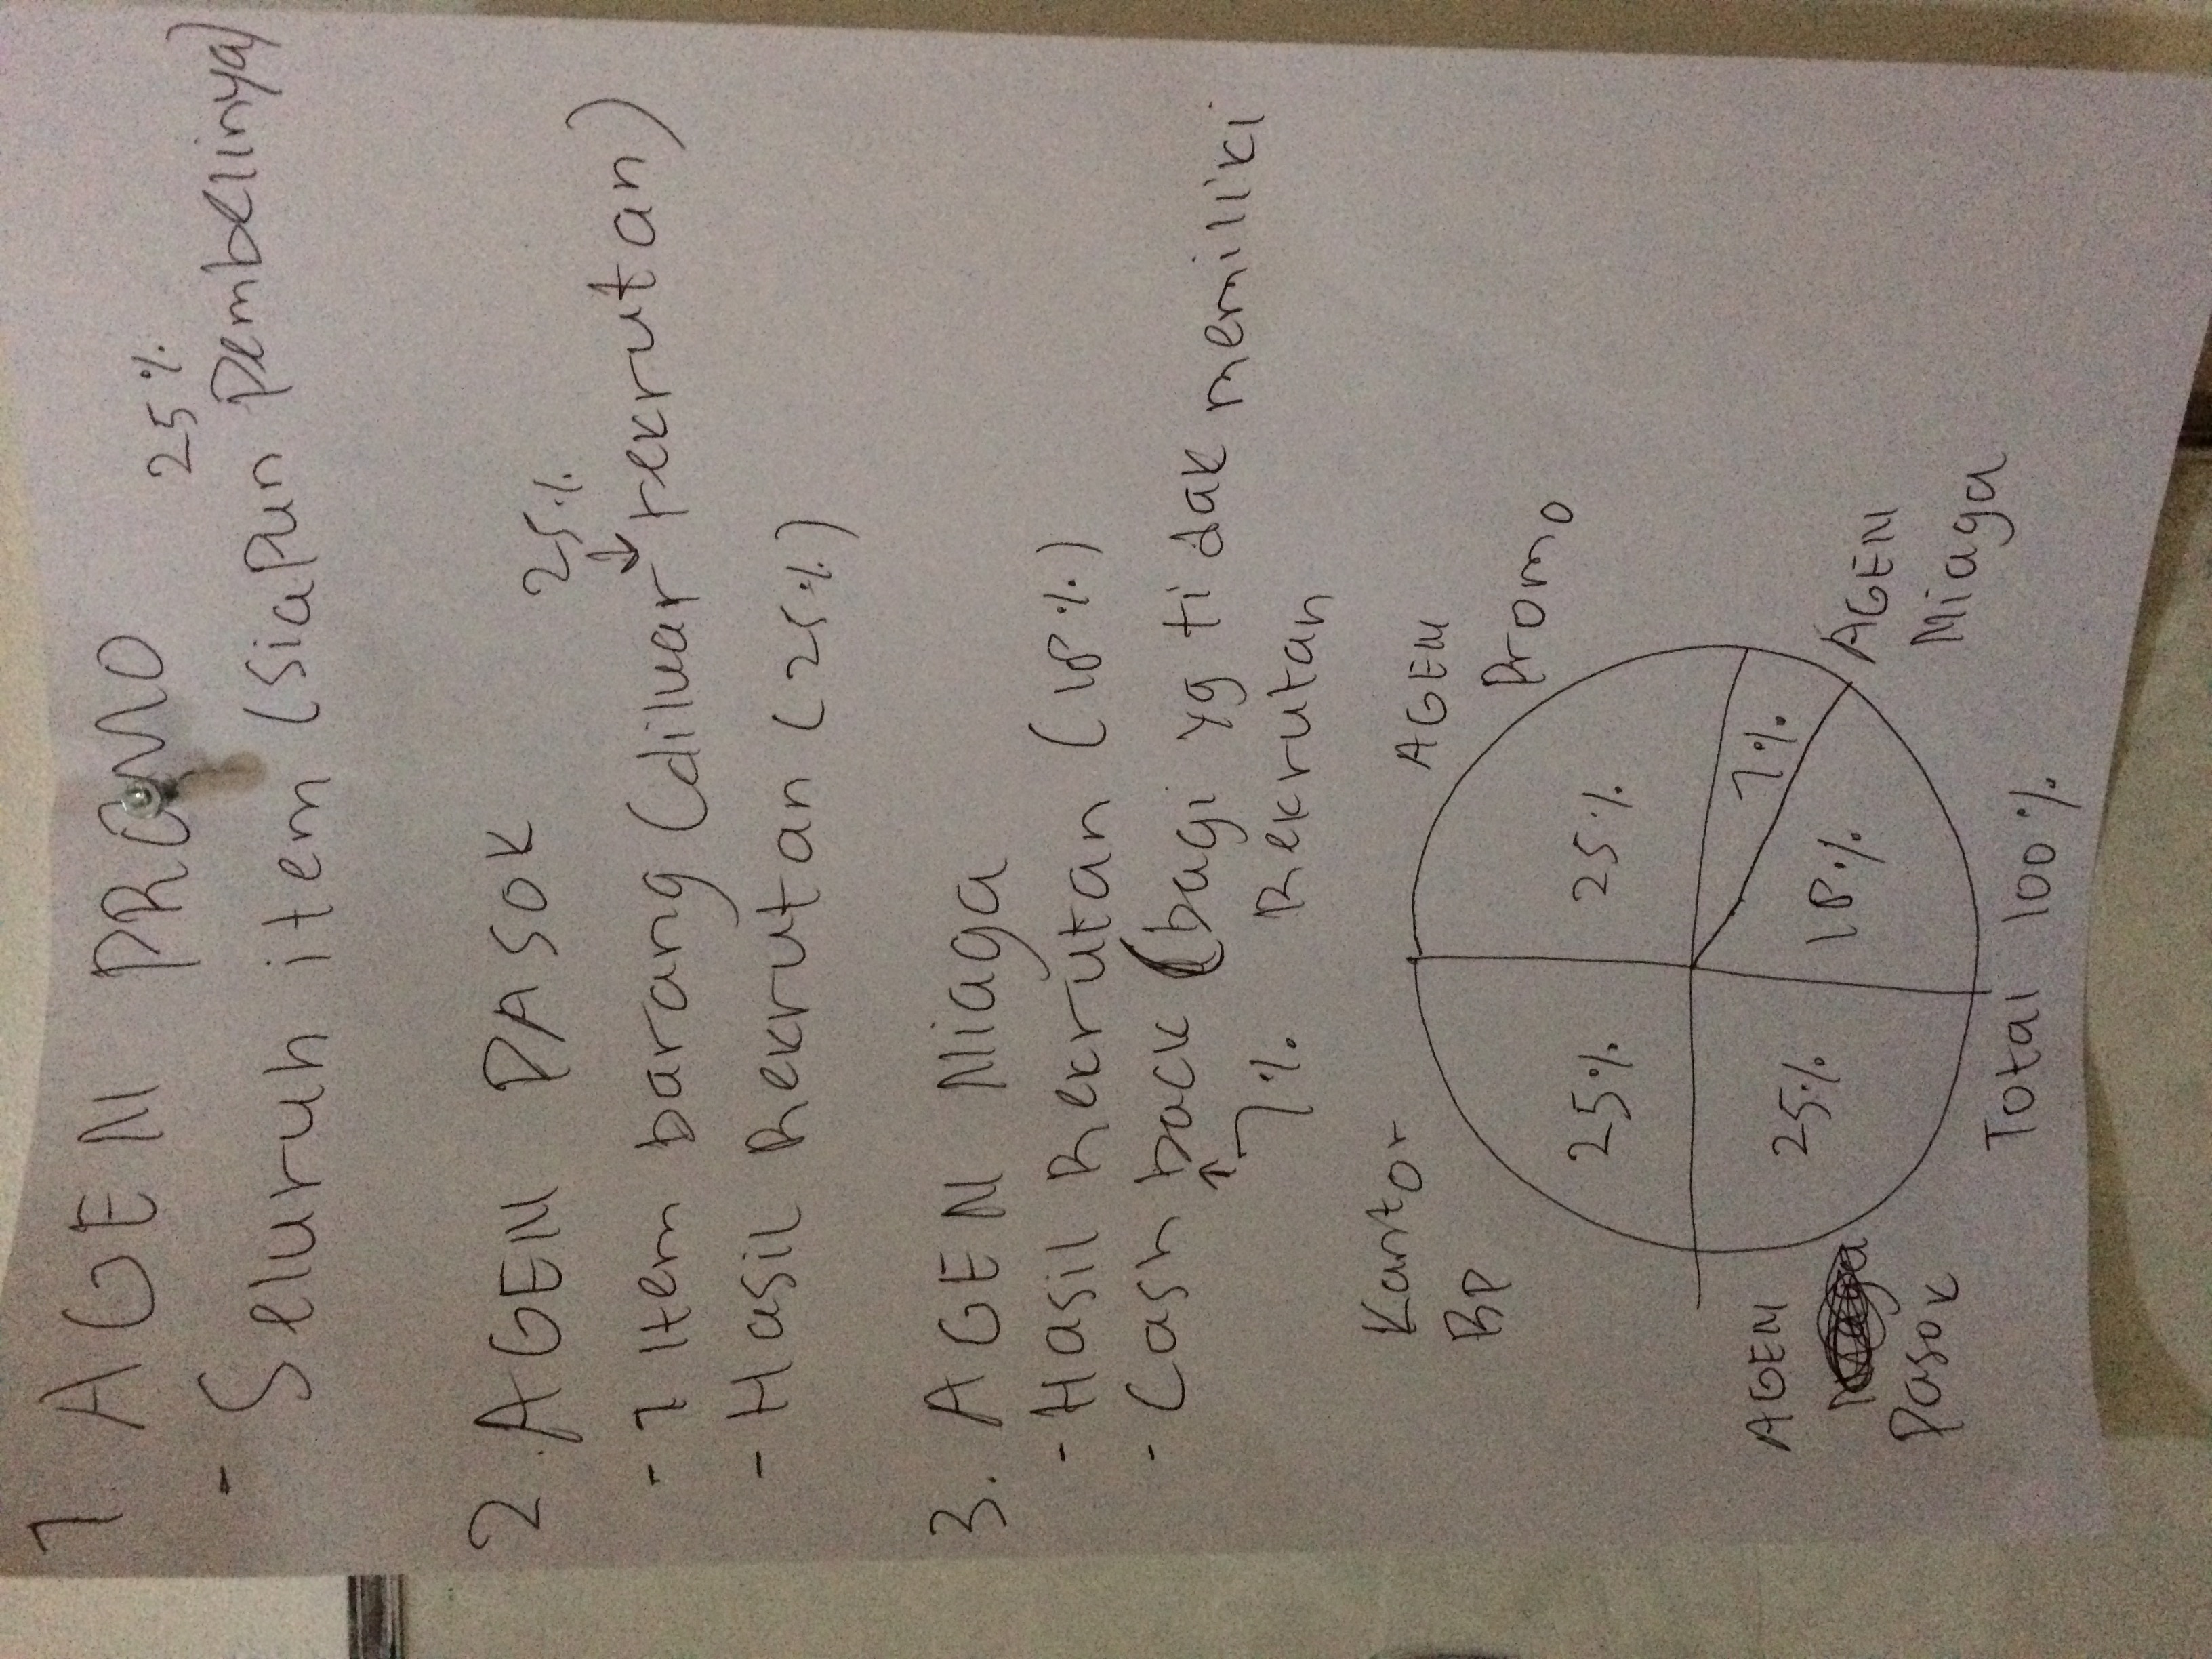 1. AGEN PROMO
25%
- Seluruh item (siapun pembelinya)
2. AGEN PASOK
25%
- 1 Item barang (diluar rekrutan)
- Hasil Rekrutan (25%)
3. AGEN Niaga
- Hasil Rekrutan (18%)
- Cash back (bagi yg tidak memiliki
7% Rekrutan
Kantor
BP
AGEN
Promo
25%
25%
7%
AGEN
25%
18%
Pasok
AGEN
Niaga
Total 100%